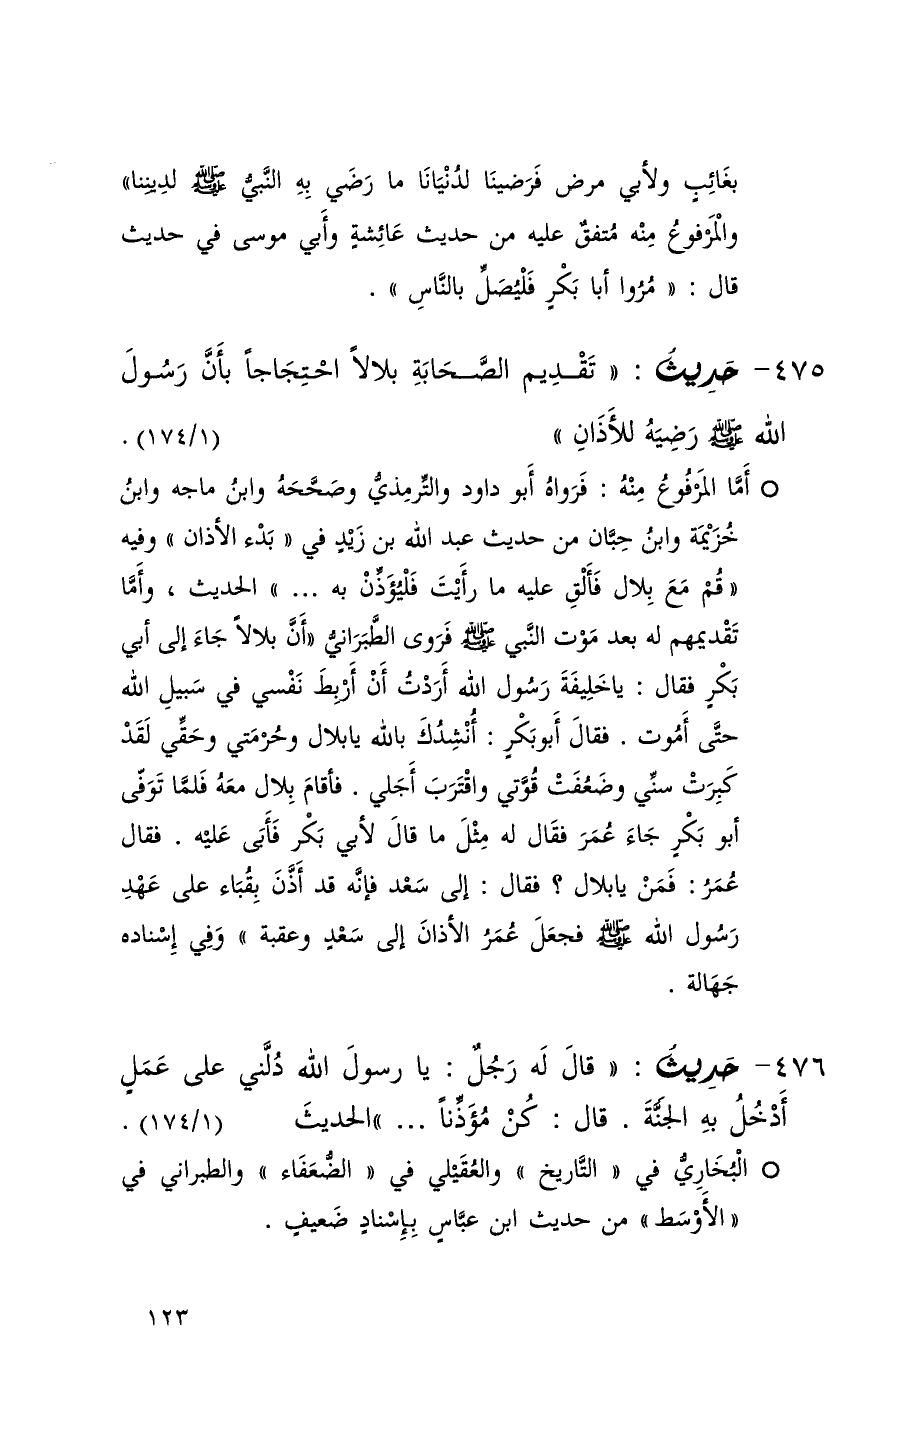 بغَائِبٍ ولأبي مرض فَرَضينَا لدُنْيَانَا ما رَضَي بِهِ النَّبيُّ ﷺ لدِينِنا»
والْمَرْفوعُ مِنْه مُتفقٌ عليه من حديث عَائِشةٍ وأَبي موسى في حديث
قال : « مُرُوا أبا بَكْرٍ فَلْيُصَلِّ بالنَّاسِ » .
٤٧٥- حَدِيثُ : « تَقْـديم الصَّـحَابَةِ بلالاً احْتِجَاجاً بأَنَّ رَسُولَ
الله ﷺ رَضِيَهُ للأَذَانِ » (١٧٤/١) .
○ أَمَّا المَرْفُوعُ مِنْهُ : فَرَواهُ أَبو داود والتِّرمِذيُّ وصَحَّحَهُ وابنُ ماجه وابنُ
خُزَيْمَة وابنُ حِبَّان من حديث عبد الله بن زَيْدٍ في « بَدْء الأذان » وفيه
« قُمْ مَعَ بِلال فَأَلْقِ عليه ما رأَيْتَ فَلْيُؤَذِّنْ به ... » الحديث ، وأَمَّا
تَقْديمهم له بعد مَوْت النَّبي ﷺ فَرَوى الطَّبَرَانيُّ «أَنَّ بلالاً جَاءَ إلى أبي
بَكْرٍ فقال : ياخَلِيفَةَ رَسُول الله أَرَدْتُ أَنْ أَرْبِطَ نَفْسي في سَبيلِ الله
حتَّى أَمُوت . فقالَ أَبوبَكْرٍ : أُنْشِدُكَ بالله يابلال وحُرْمَتي وحَقِّي لَقَدْ
كَبِرَتْ سنِّي وضَعُفَتْ قُوَّتي واقْتَرَبَ أَجَلي . فأقامَ بِلال معَهُ فَلمَّا تَوَفّى
أبو بَكْرٍ جَاءَ عُمَرَ فقَال له مِثْلَ ما قالَ لأبي بَكْر فَأَبَى عَليْه . فقال
عُمَرُ : فَمَنْ يابلال ؟ فقال : إلى سَعْد فإنَّه قد أَذَّنَ بِقُبَاء على عَهْدِ
رَسُول الله ﷺ فجعَلَ عُمَرُ الأذانَ إلى سَعْدٍ وعقبة » وَفِي إِسْناده
جَهَالة .
٤٧٦- حَدِيثَ : « قالَ لَه رَجُلٌ : يا رسولَ الله دُلَّني على عَمَلٍ
أَدْخُلُ بهِ الجَنَّةَ . قال : كُنْ مُؤَذِّناً ... »الحديثَ (١٧٤/١) .
○ الْبُخَارِيُّ في « التَّاريخ » والعُقَيْلي في « الضُّعَفَاء » والطبراني في
« الأَوْسَط » من حديث ابن عبَّاسٍ بِإِسْنادٍ ضَعيفٍ .
١٢٣